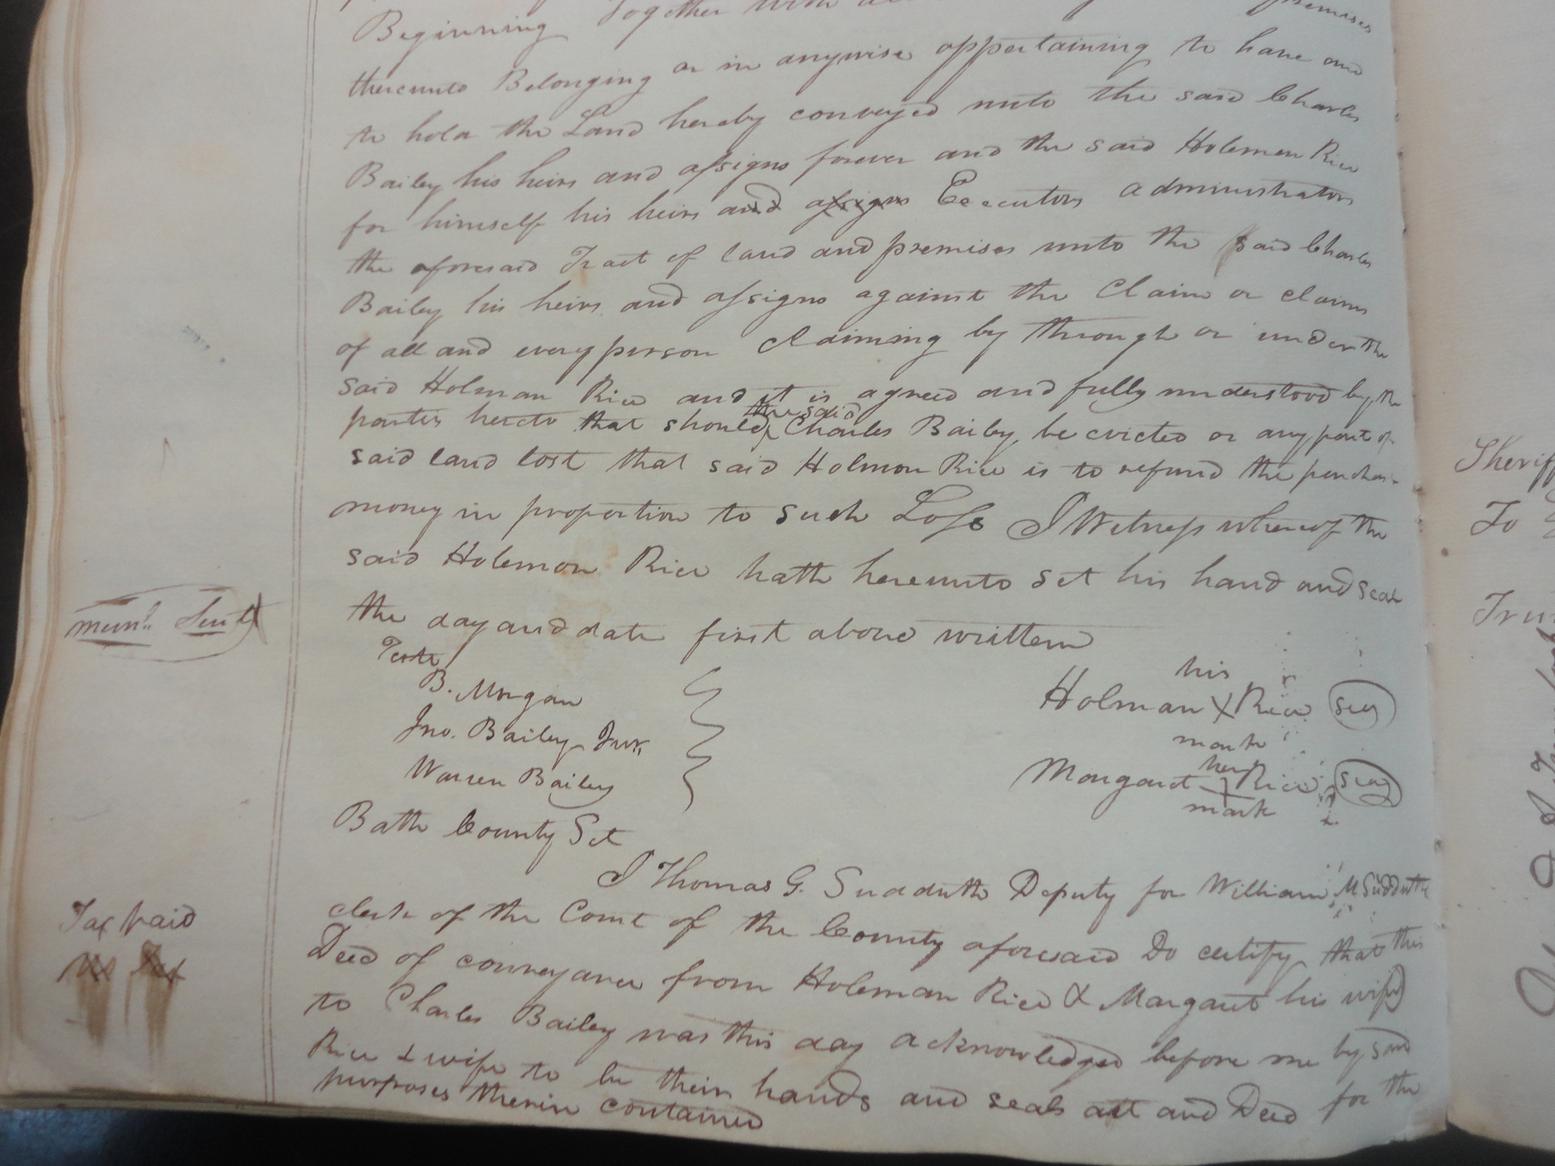 Beginning Together with
premises
thereunto Belonging or in anywise appertaining to have and
to hold the Land hereby conveyed unto the said Charles
Bailey his heirs and assigns forever and the said Holeman Rice
for himself his heirs and assigns Executors administrators
the aforesaid Tract of land and premises unto the said Charles
Bailey his heirs and assigns against the Claim or claims
of all and every person claiming by through or under the
said Holman Rice and it is agreed and fully understood by the
parties hereto that should the said Charles Bailey be evicted or any part of
said land lost that said Holmon Rice is to refund the purchase
money in proportion to such Loss I Witness whereof the
said Holemon Rice hath hereunto set his hand and seal
the day and date first above written
Teste
B. Morgan
Jno. Bailey Junr.
Warren Bailey
his
Holman X Rice seal
mark
her
Margaret + Rice seal
mark
Bath County Sct
I Thomas G. Sudduth Deputy for William M Sudduth
clerk of the Court of the County aforesaid Do certify that this
Deed of conveyance from Holeman Rice & Margaret his wife
to Charles Bailey was this day acknowledged before me by said
Rice & wife to be their hands and seals act and Deed for the
purposes therein contained
Tax paid
Sheriff
To